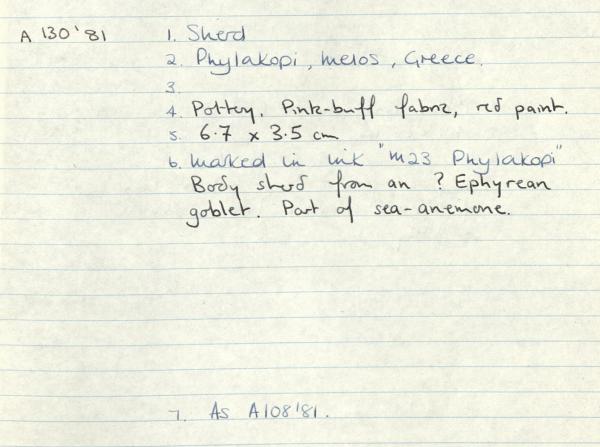 A 130'81
1. Sherd
2. Phylakopi, Melos, Greece.
3.
4. Pottery. Pink-buff fabric, red paint.
5. 6.7 x 3.5 cm
6. Marked in ink "M23 Phylakopi"
Body sherd from an ? Ephyrean
goblet. Part of sea-anemone.
7. As A108'81.